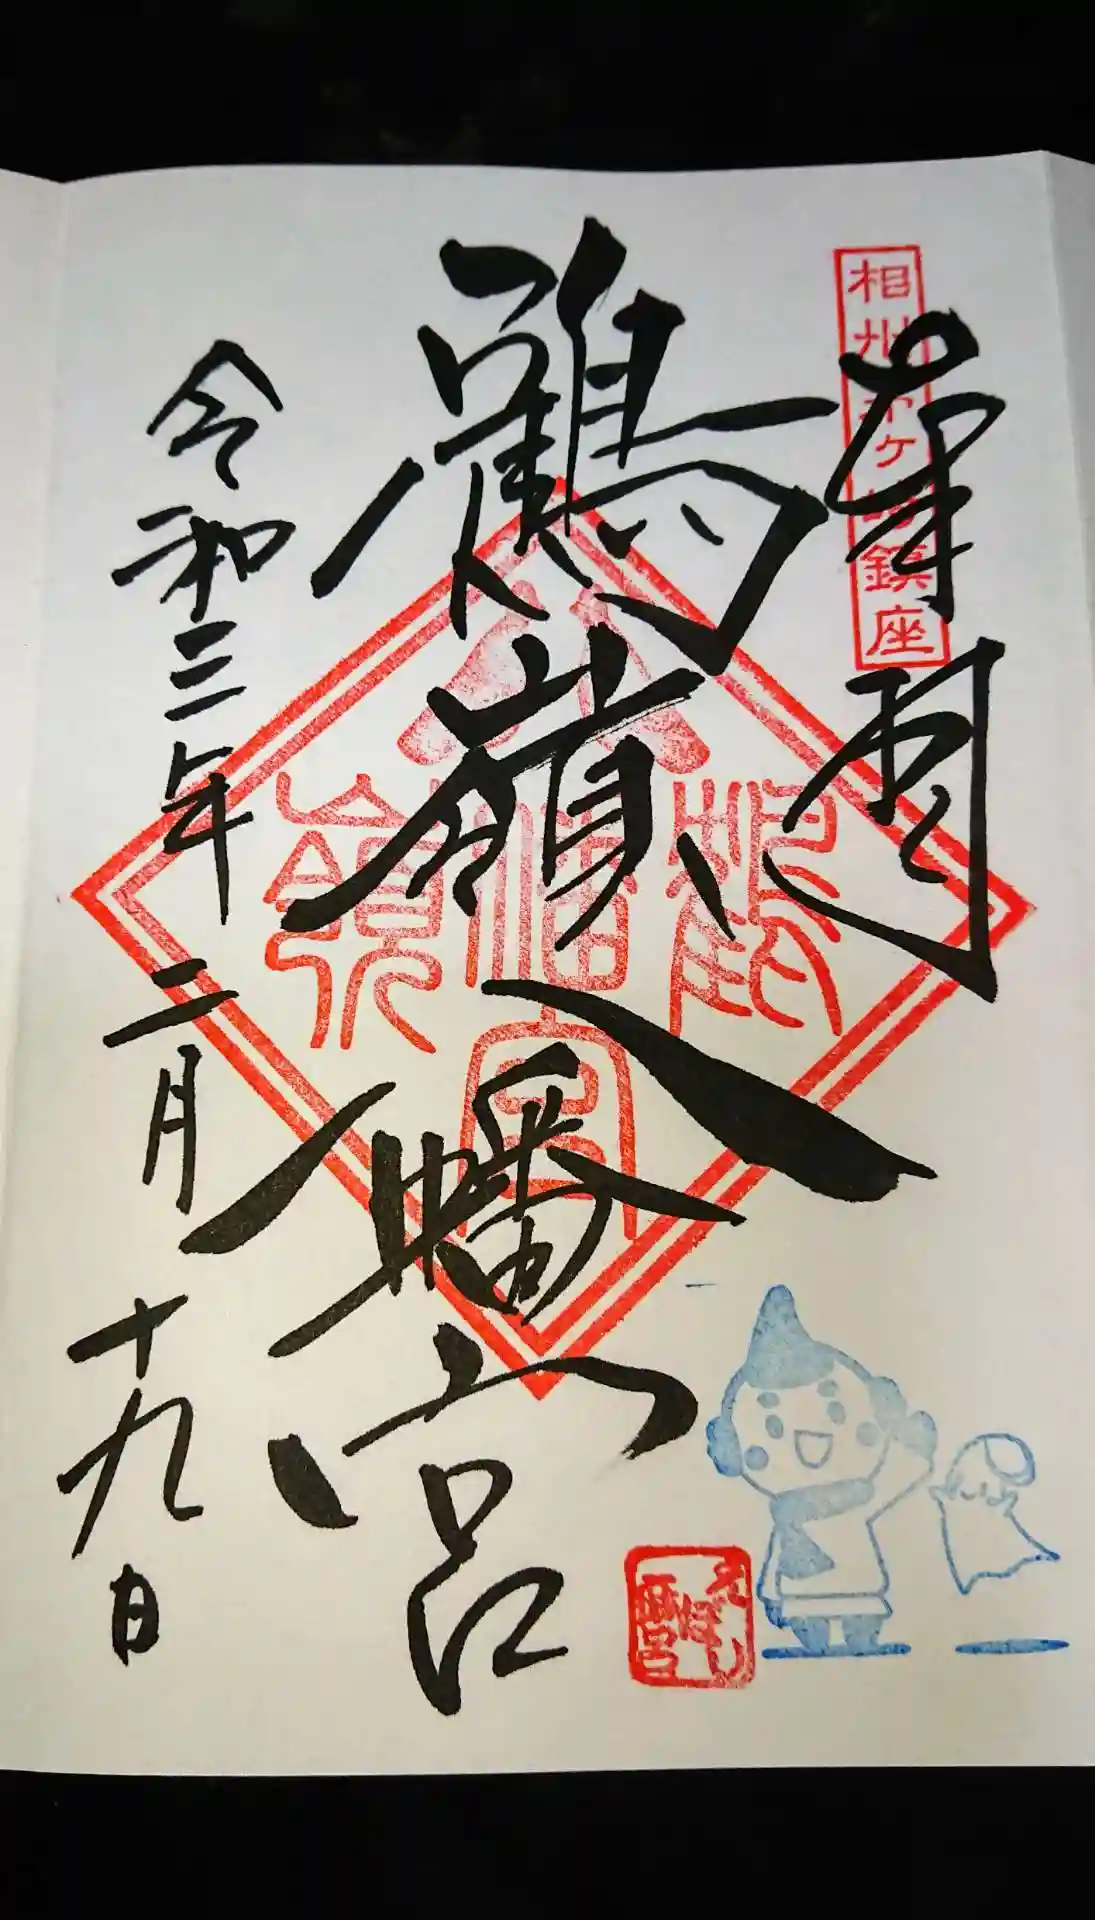 奉拝
相州茅ヶ崎鎮座
鶴嶺八幡宮
鶴嶺
八幡宮
令和三年二月十九日
えぼし
麻呂